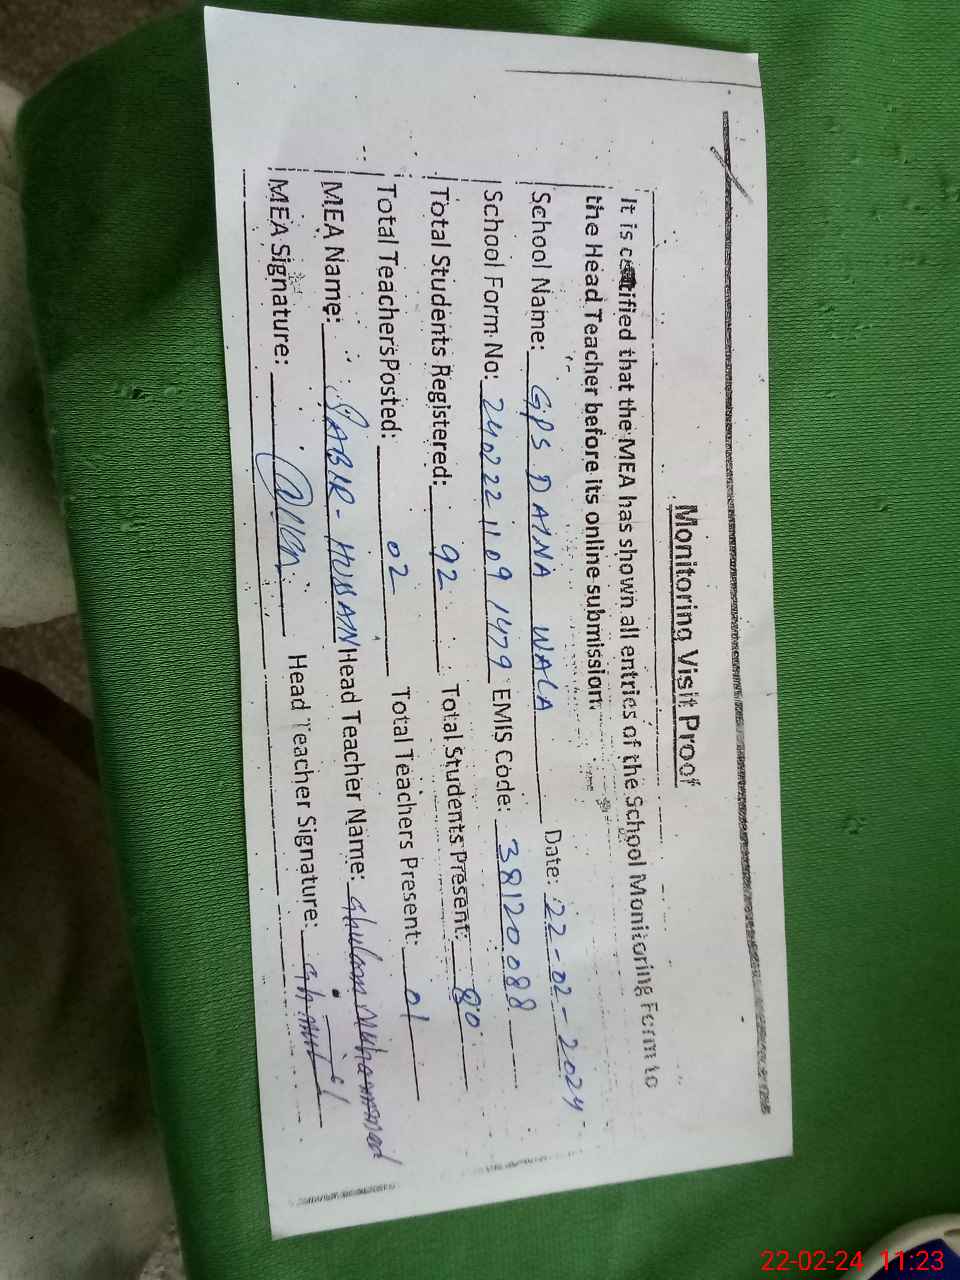 Monitoring Visit Proof
It is certified that the MEA has shown all entries of the School Monitoring Form to
the Head Teacher before its online submission.
School Name: GPS DAINA WALA Date: 22-02-2024
School Form No: 240222 1109 1479 EMIS Code: 38120088
Total Students Registered: 92 Total Students Present: 80
Total Teachers Posted: 02 Total Teachers Present: 01
MEA Name: SABIR-HUSSAIN Head Teacher Name: Ghulam Muhammad
MEA Signature: Head Teacher Signature:
22-02-24 11:23